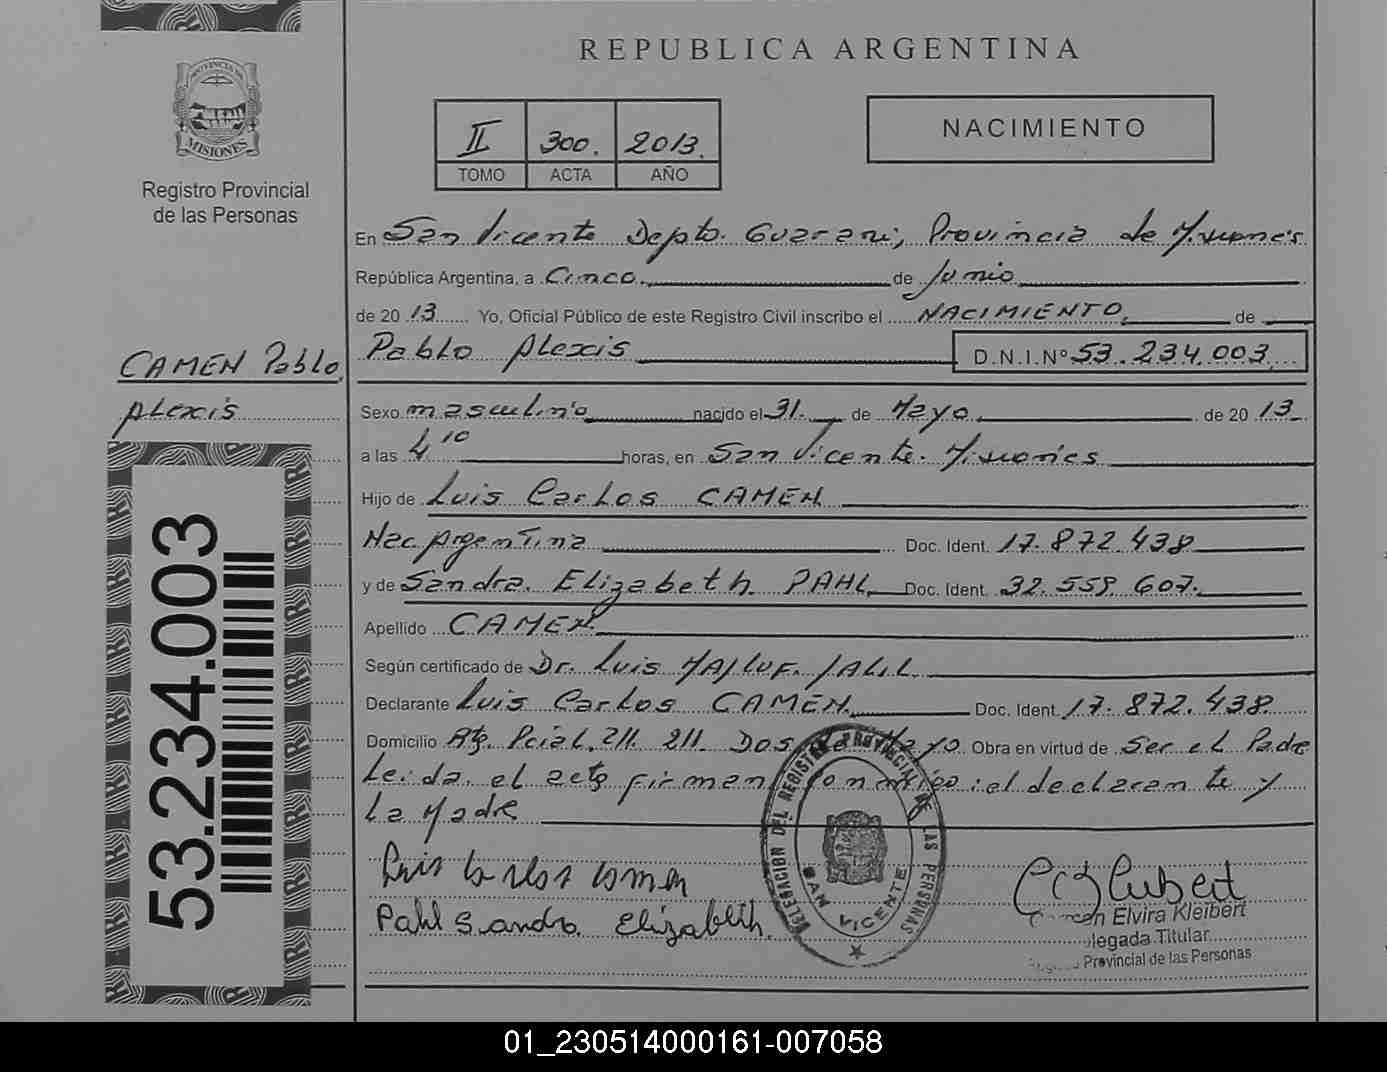 REPUBLICA ARGENTINA
PROVINCIA DE
MISIONES
Registro Provincial
de las Personas
II 300. 2013.
TOMO ACTA AÑO
NACIMIENTO
En San Vicente Depto. Guarani, Provincia de Misiones
República Argentina, a Cinco de Junio
de 2013 Yo, Oficial Público de este Registro Civil inscribo el NACIMIENTO de
CAMEN Pablo
Alexis
Pablo Alexis D.N.I.Nº 53.234.003
Sexo masculino nacido el 31. de Mayo de 2013
a las 4 10 horas, en San Vicente. Misiones
Hijo de Luis Carlos CAMEN
Nac Argentina Doc. Ident. 17.872.438
y de Sandra Elizabeth PAHL Doc. Ident. 32.559.607.
Apellido CAMEN
Según certificado de Dr. Luis MAJLUF JALIL
Declarante Luis Carlos CAMEN Doc. Ident. 17.872.438
Domicilio Pcial. 211. 211. Dos de Mayo Obra en virtud de Ser el Padre
Leida el acta firman conmigo: el declarante y
La Madre
Luis Carlos Camen
Pahl Sandra Elizabeth
DELEGACION DEL REGISTRO PROVINCIAL DE LAS PERSONAS
SAN VICENTE
Elvira Kleibert
Delegada Titular
Provincial de las Personas
53.234.003
01_230514000161-007058